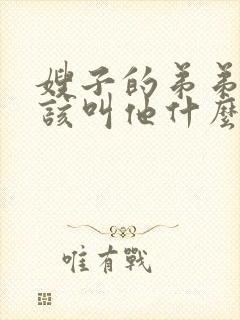 嫂子的弟弟
該叫他什麼
唯有戰